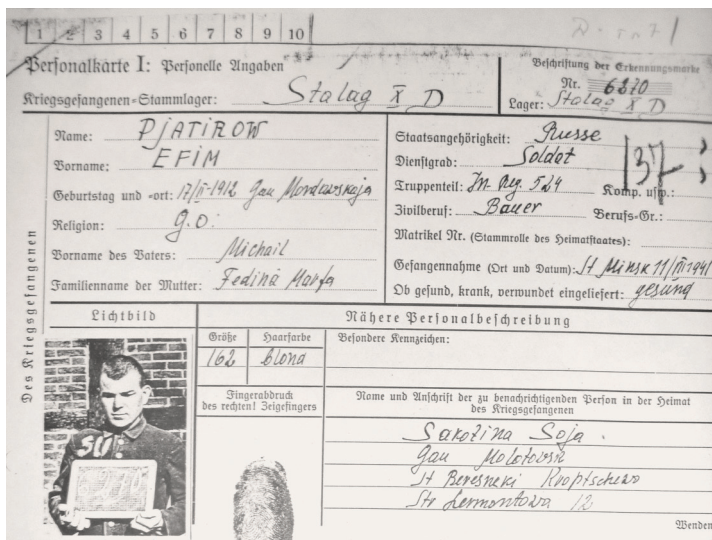 1 2 3 4 5 6 7 8 9 10
Personalkarte I: Personelle Angaben
Kriegsgefangenen-Stammlager: Stalag X D
Beschriftung der Erkennungsmarke
Nr. 6270
Lager: Stalag X D
Des Kriegsgefangenen
Name: PJATIROW
Vorname: EFIM
Geburtstag und -ort: 17/II-1912 Gau Mordowskaja
Religion: g.o.
Vorname des Vaters: Michail
Familienname der Mutter: Fedina Marfa
Staatsangehörigkeit: Russe
Dienstgrad: Soldat
Truppenteil: In. Reg. 524 Komp. usw.:
137
Zivilberuf: Bauer Berufs-Gr.:
Matrikel Nr. (Stammrolle des Heimatstaates):
Gefangennahme (Ort und Datum): St Minsk 11/VII 1941
Ob gesund, krank, verwundet eingeliefert: gesund
Lichtbild
SU
Nähere Personalbeschreibung
Größe Haarfarbe Besondere Kennzeichen:
162 blond
Fingerabdruck
des rechten! Zeigefingers
Name und Anschrift der zu benachrichtigenden Person in der Heimat
des Kriegsgefangenen
Sarozina Soja.
Gau Molotowsk
St Beresneki Kroptschewo
Str Lermontowa 12
Wenden